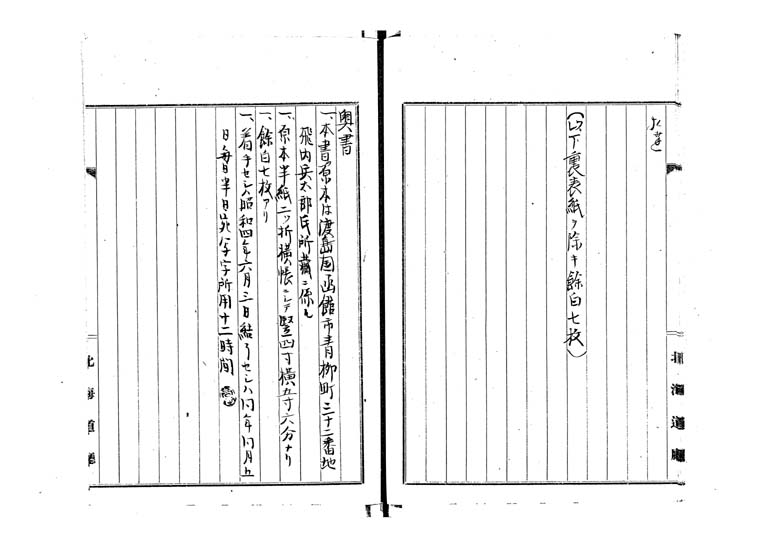 (以下裏表紙ヲ除キ餘白七枚)
北海道廳
奥書
一、本書原本は渡島国函館市青柳町三十二番地
飛内兵太郎氏所蔵ニ係ル
一、原本半紙二ツ折横帳ニシテ竪四寸横五寸六分ナリ
一、餘白七枚アリ
一、着手セシハ昭和四年六月三日結了セシハ同年同月五
日毎日半日宛写字所用十二時間
北海道廳